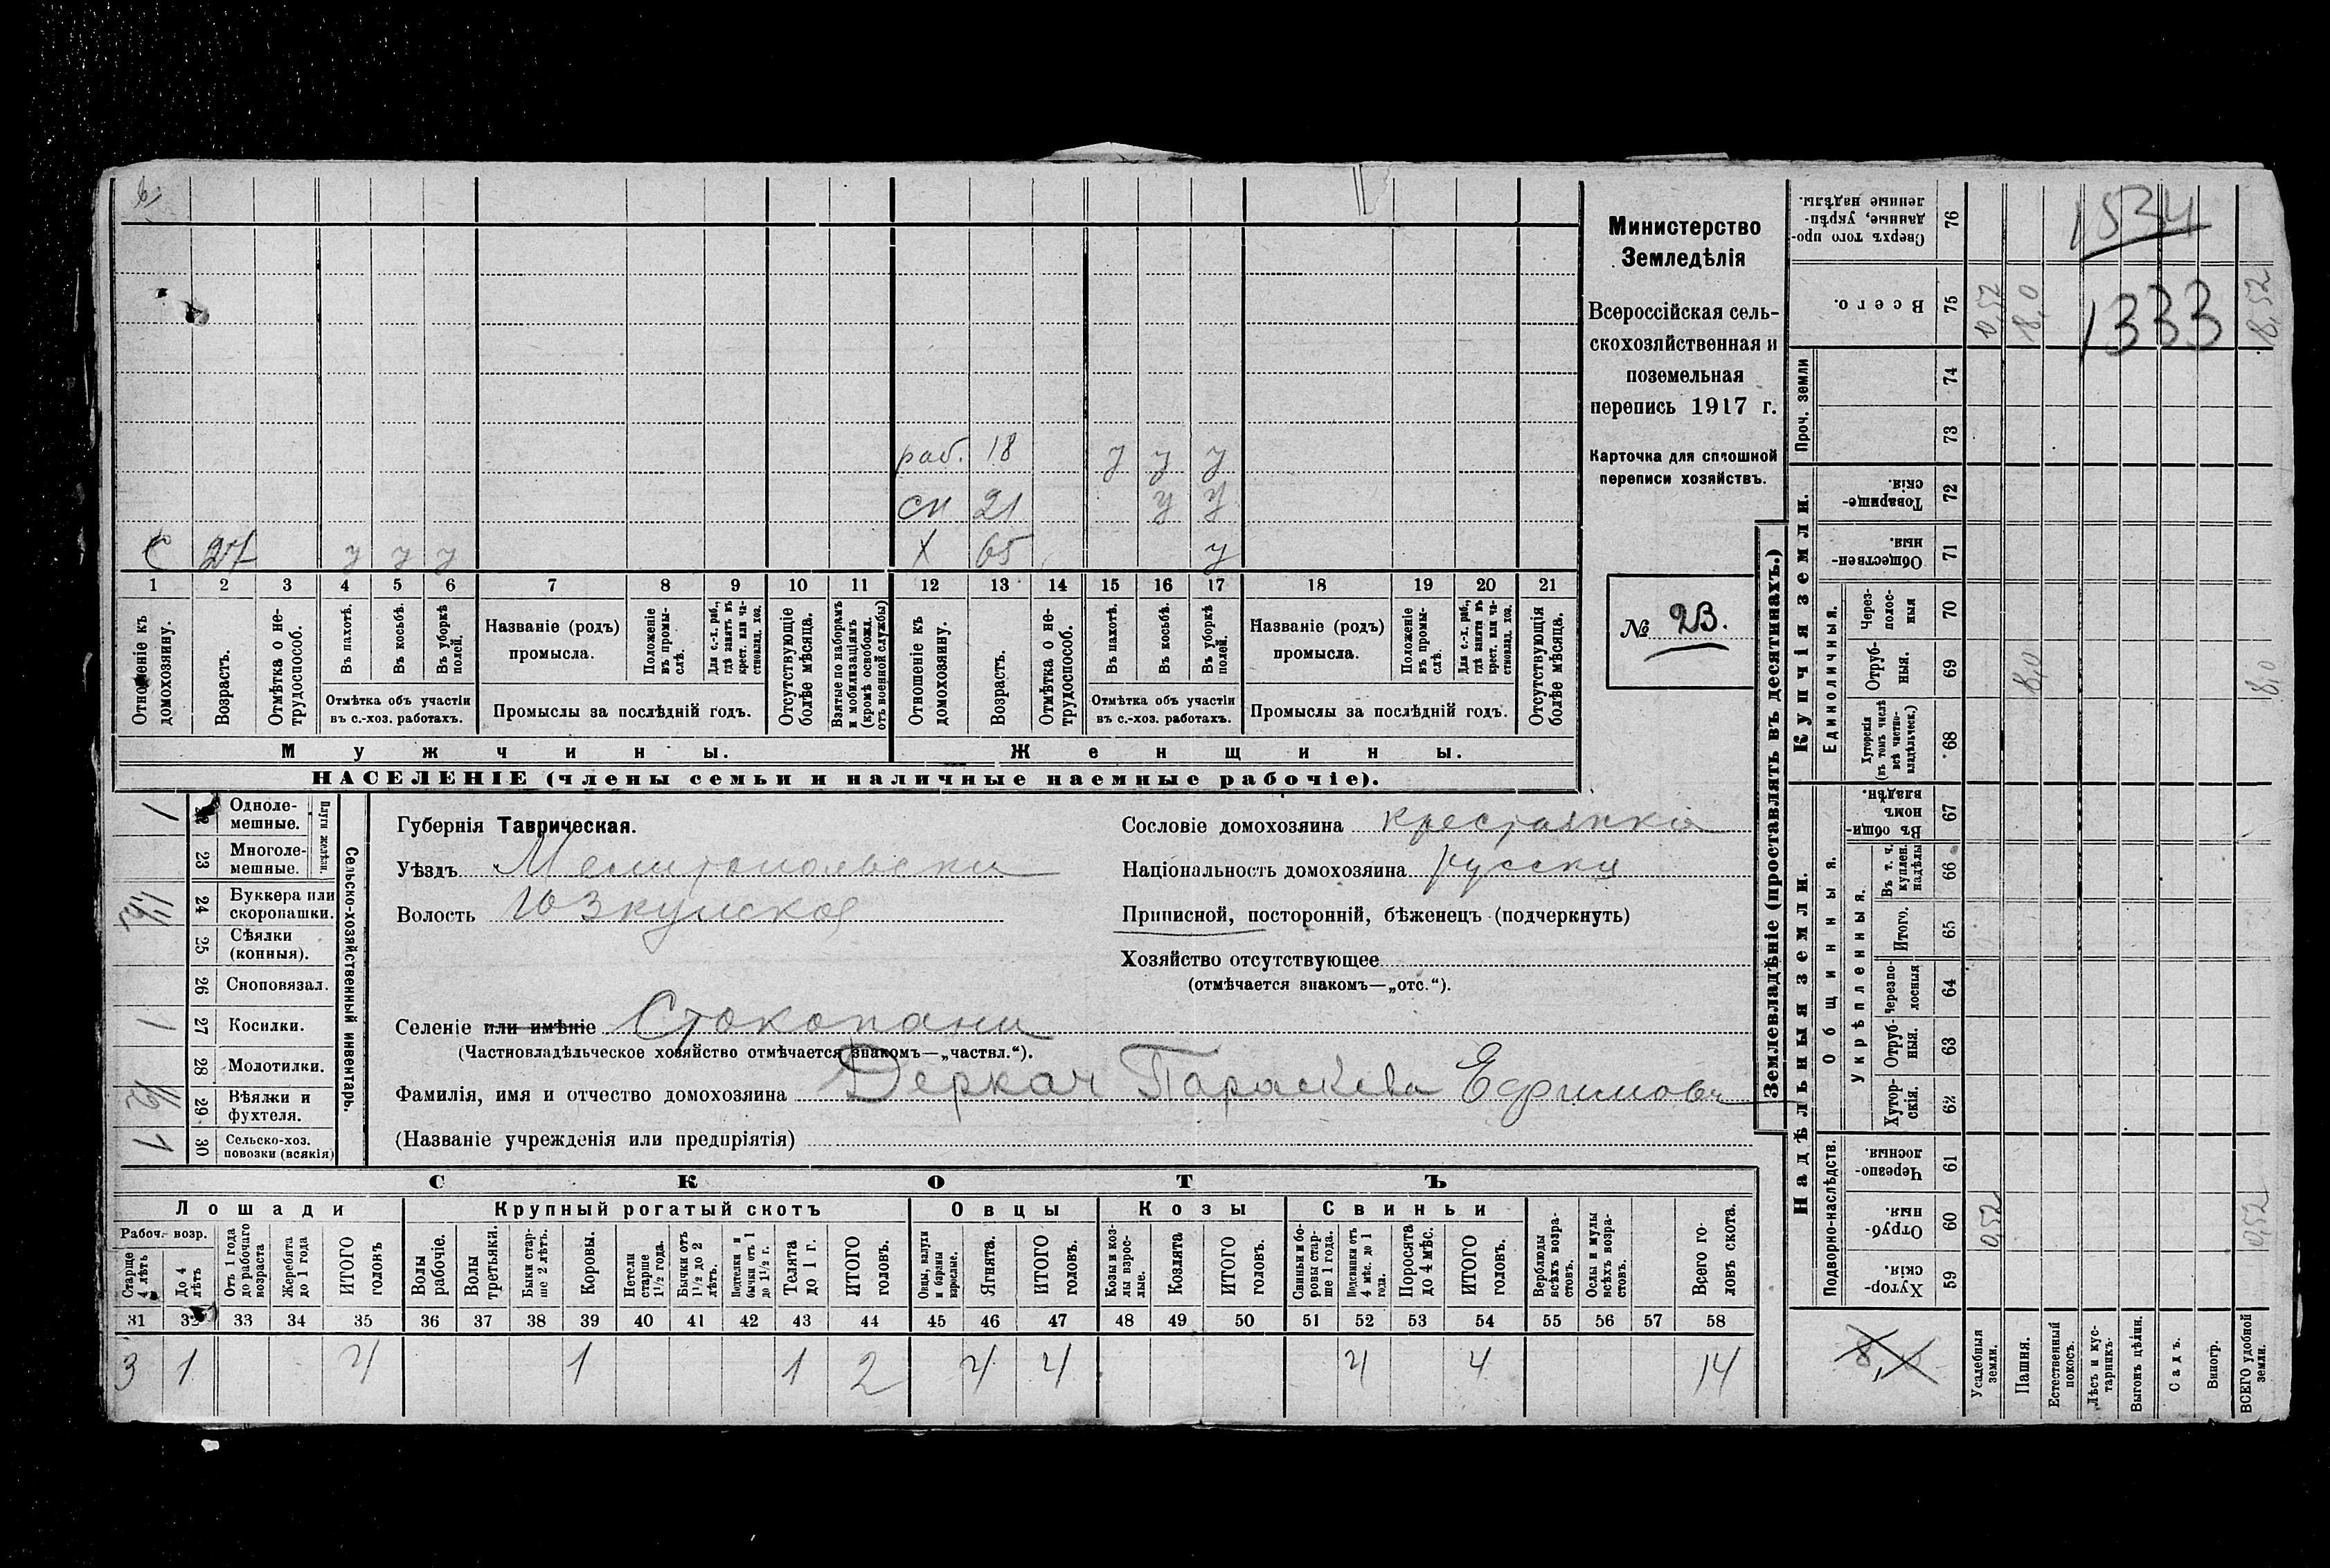 Министерство
Земледѣлія
Всероссійская сель-
скохозяйственная и
поземельная
перепись 1917 г.
Карточка для сплошной
переписи хозяйствъ.
№ 23.
раб. 18 у у у
сн 21 у у
С 27 у у у х 65 у
1 2 3 4 5 6 7 8 9 10 11 12 13 14 15 16 17 18 19 20 21
Отношеніе къ домохозяину.
Возрастъ.
Отмѣтка о не-
трудоспособ.
Въ пахотѣ.
Въ косьбѣ.
Въ уборкѣ
полей.
Отмѣтка объ участіи
въ с.-хоз. работахъ.
Названіе (родъ)
промысла.
Положеніе
въ промы-
слѣ.
Для с.-х. раб.,
гдѣ занятъ въ
крест. или ча-
стновлад. хоз.
Промыслы за послѣдній годъ.
Отсутствующіе
болѣе мѣсяца.
Взятые по наборамъ
и мобилизаціямъ
(кромѣ освобожд.
отъ военной службы)
Отношеніе къ
домохозяину.
Возрастъ.
Отмѣтка о не-
трудоспособ.
Въ пахотѣ.
Въ косьбѣ.
Въ уборкѣ
полей.
Отмѣтка объ участіи
въ с.-хоз. работахъ.
Названіе (родъ)
промысла.
Положеніе
въ промы-
слѣ.
Для с.-х. раб.,
гдѣ занята въ
крест. или ча-
стновлад. хоз.
Промыслы за послѣдній годъ.
Отсутствующія
болѣе мѣсяца.
Мужчины. Женщины.
НАСЕЛЕНІЕ (члены семьи и наличные наемные рабочіе).
Сельско-хозяйственный инвентарь.
Плуги желѣзн.
1 Одноле-
мешные.
23 Многоле-
мешные.
24 Буккера или
скоропашки.
25 Сѣялки
(конныя).
26 Сноповязал.
1 27 Косилки.
28 Молотилки.
1/2 29 Вѣялки и
фухтеля.
1 30 Сельско-хоз.
повозки (всякія)
Губернія Таврическая.
Уѣздъ Мелитопольски
Волость Юзкуиское
Сословіе домохозяина крестьянка
Національность домохозяина русски
Приписной, посторонній, бѣженецъ (подчеркнуть)
Хозяйство отсутствующее
(отмѣчается знакомъ—„отс.“).
Селеніе или имѣніе Стокопани
(Частновладѣльческое хозяйство отмѣчается знакомъ—„частвл.“).
Фамилія, имя и отчество домохозяина Деркач Параскева Ефимовн
(Названіе учрежденія или предпріятія)
СКОТЪ
Лошади Крупный рогатый скотъ Овцы Козы Свиньи
Рабоч. возр.
Старше
4 лѣтъ
До 4
лѣтъ
Отъ 1 года
до рабочаго
возраста
Жеребята
до 1 года
ИТОГО
головъ
Волы
рабочіе.
Волы
третьяки.
Быки стар-
ше 2 лѣтъ.
Коровы.
Нетели
старше
1½ года.
Бычки отъ
1½ до 2
лѣтъ.
Подтелки и
бычки отъ 1
до 1½ г.
Телята
до 1 г.
ИТОГО
головъ.
Овцы, валухи
и бараны
взрослые.
Ягнята.
ИТОГО
головъ.
Козы и коз-
лы взрос-
лые.
Козлята
ИТОГО
головъ.
Свиньи и бо-
ровы стар-
ше 1 года.
Подсвинки отъ
4 мѣс. до 1
года.
Поросята
до 4 мѣс.
ИТОГО
головъ.
Верблюды
всѣхъ возра-
стовъ.
Ослы и мулы
всѣхъ возра-
стовъ.
Всего го-
ловъ скота.
31 32 33 34 35 36 37 38 39 40 41 42 43 44 45 46 47 48 49 50 51 52 53 54 55 56 57 58
3 1 4 1 1 2 4 4 4 4 14
Землевладѣніе (проставлять въ десятинахъ.)
1534
1333
Сверхъ того про-
данные, укрѣп-
ленные надѣлы.
76
Всего. 75 0,52 8,0 8,52
Проч. земли
74
73
Купчія земли.
Товарище-
скія. 72
Обществен-
ныя. 71
Единоличныя.
Через-
полос-
ныя 70
Отруб-
ныя. 69 8,0 8,0
Хуторскія
(въ томъ числѣ
всѣ частно-
владѣльческ.) 68
Надѣльныя земли.
Общинныя.
Въ общи-
номъ
владѣн. 67
Укрѣпленныя.
Въ т. ч.
куплен.
надѣлы 66
Итого. 65
Черезпо-
лосныя 64
Отруб-
ныя. 63
Хутор-
скія. 62
Подворно-наслѣдств.
Черезпо-
лосныя. 61
Отруб-
ныя. 60 0,52 0,52
Хутор-
скія. 59
Усадебныя
земли.
Пашня.
Естественный
покосъ.
Лѣсъ и кус-
тарникъ.
Выгонъ цѣлин.
Садъ.
Виногр.
ВСЕГО удобной
земли.